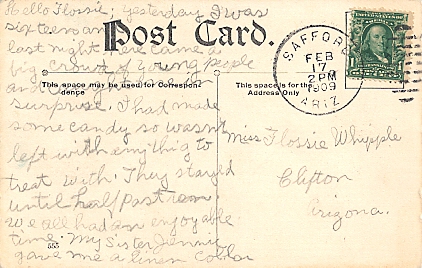 Hello Flossie: yesterday I was
sixteen an
last night here came a
big crowd of young people
an
surprise. I had made
some candy so wasn't
left with anything to
treat with. They stayed
until half past ten
we all had an enjoyable
time. My sister Jennie
gave me a linen collar
Post Card.
This space may be used for Correspondence
This space is for the Address Only
SAFFORD
FEB
17
2PM
1909
ARIZ
Miss Flossie Whipple
Clifton
Arizona.
555